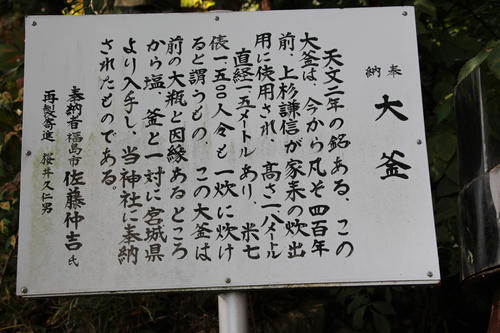 奉納
大釜
天文二年の銘ある、この
大釜は、今から凡そ四百年
前、上杉謙信が家来の炊出
用に使用され、高さ一八メートル
直経一五メートルあり、米七
俵一五〇人分も一炊に炊け
ると謂うもの、この大釜は
前の大瓶と因縁あるところ
から塩釜と一対に宮城県
より入手し、当神社に奉納
されたものである。
奉納者福島市佐藤仲吉氏
再製寄進 桜井久仁男